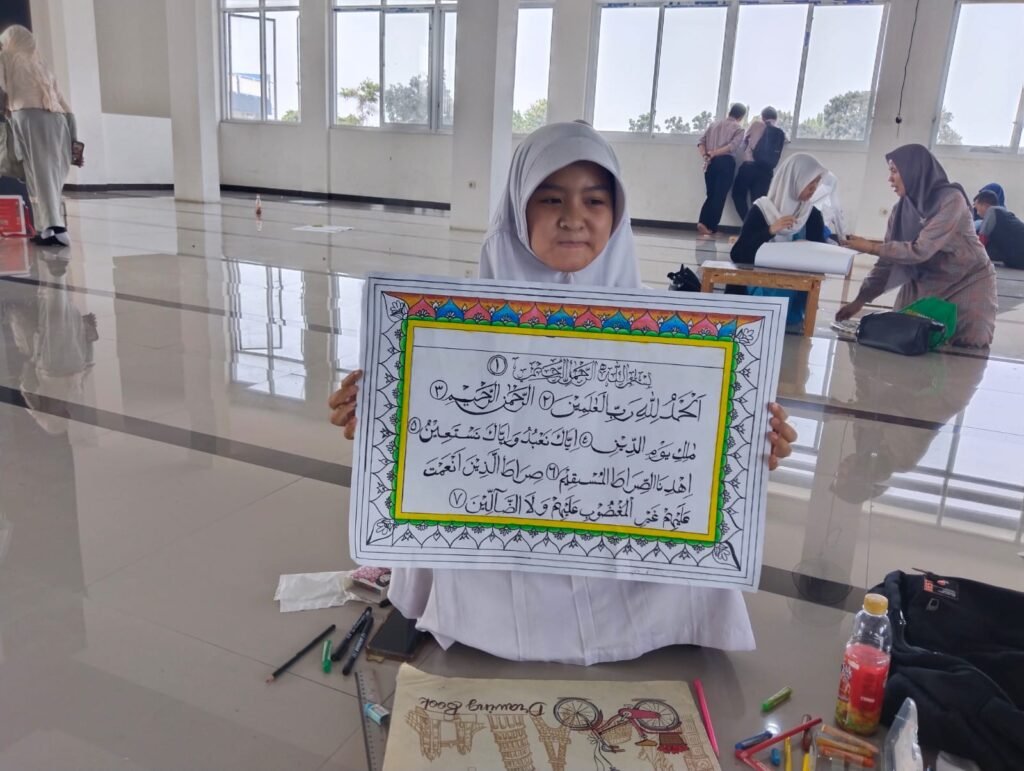 بِسْمِ اللّٰهِ الرَّحْمٰنِ الرَّحِيْمِ ١
اَلْحَمْدُ لِلّٰهِ رَبِّ الْعٰلَمِيْنَ ٢ الرَّحْمٰنِ الرَّحِيْمِ ٣
مٰلِكِ يَوْمِ الدِّيْنِ ٤ اِيَّاكَ نَعْبُدُ وَاِيَّاكَ نَسْتَعِيْنُ ٥
اِهْدِنَا الصِّرَاطَ الْمُسْتَقِيْمَ ٦ صِرَاطَ الَّذِيْنَ اَنْعَمْتَ
عَلَيْهِمْ غَيْرِ الْمَغْضُوْبِ عَلَيْهِمْ وَلَا الضَّاۤلِّيْنَ ٧
Drawing Book